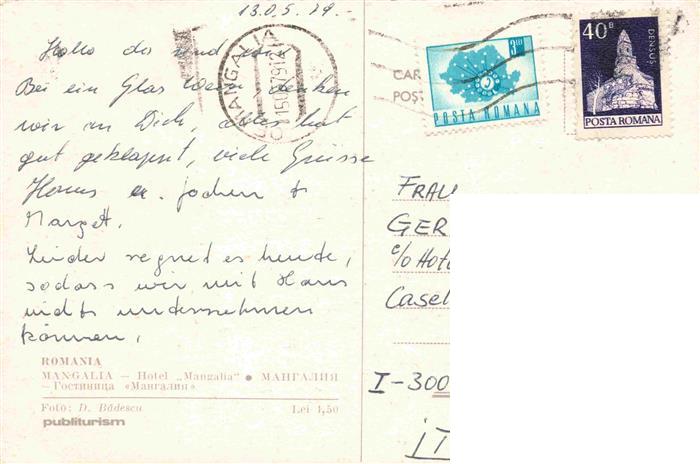 13.05.79.-
Hallo da sind wir
Bei ein Glas Wein, denken
wir an Dich, alles hat
gut geklappt, viele Grüsse
Hans u. Jochen &
Margett.
Leider regnet es heute,
sodass wir mit Hans
nichts unternehmen
können.
ROMANIA
MANGALIA — Hotel „Mangalia" ● МАНГАЛИЯ
— Гостиница «Мангалия»
Foto: D. Bădescu Lei 1,50
publiturism
MANGALIA
CAR
POȘ
POSTA ROMANA
40B
DENSUȘ
POSTA ROMANA
FRAU
GER
c/o Hote
Casel
I-300
IT